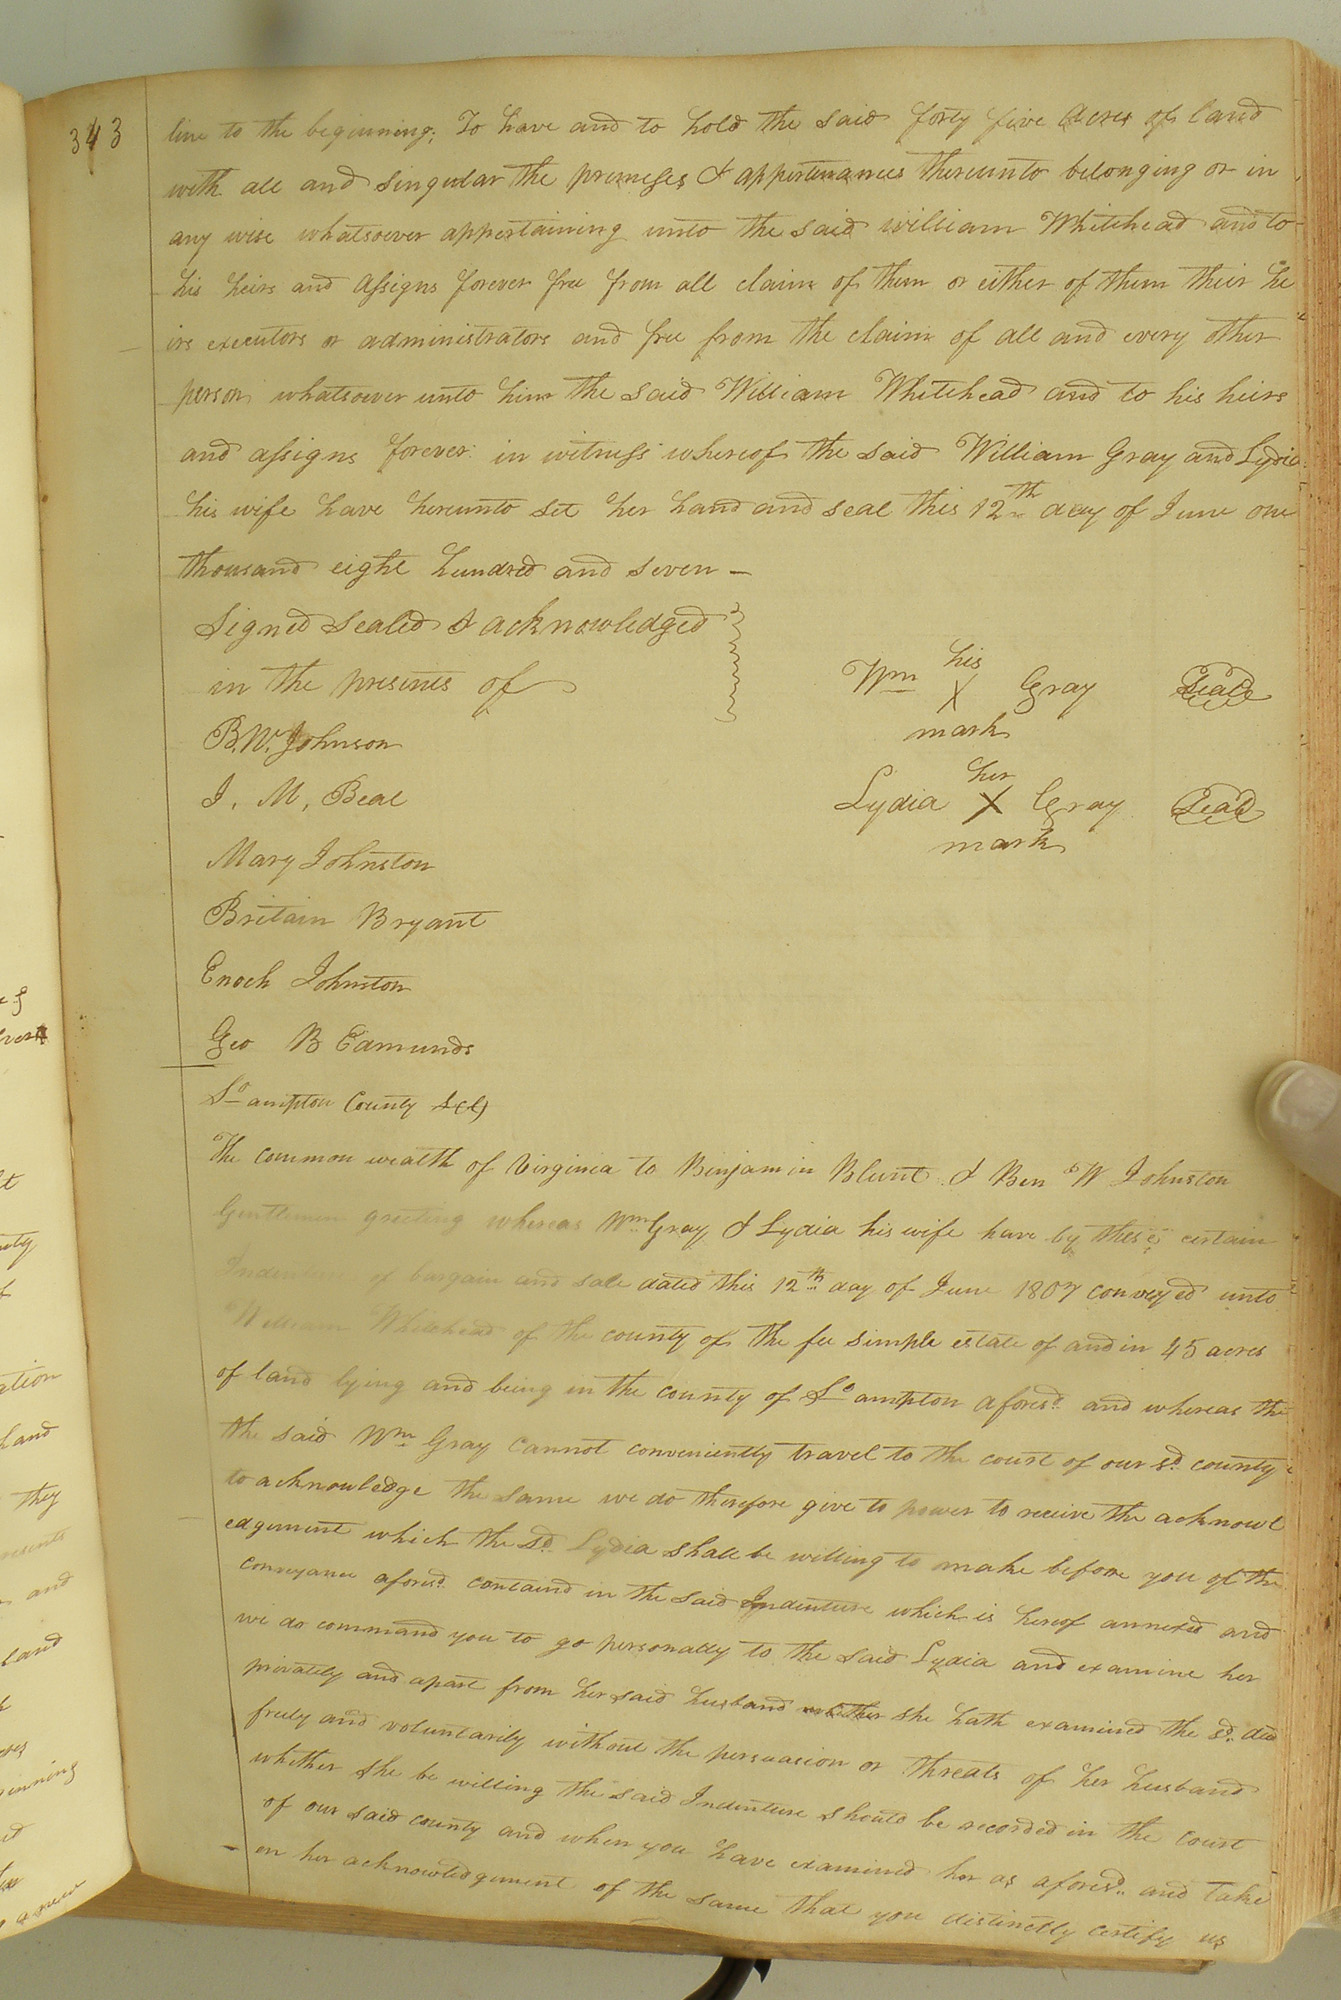 343
line to the beginning; To have and to hold the said forty five Acres of land
with all and singular the premises & appertenances thereunto belonging or in
any wise whatsoever appertaining unto the said William Whitehead and to
his heirs and assigns forever free from all claim of them or either of them their he
irs executors or administrators and free from the claim of all and every other
person whatsoever unto him the said William Whitehead and to his heirs
and assigns forever: in witness whereof the said William Gray and Lydia
his wife have hereunto set her hand and seal this 12th day of June one
thousand eight hundred and seven —
Signed Sealed & acknowledged
in the presines of
Wm his X mark Gray Seale
B.W. Johnson
J. M. Beal
Lydia her X mark Gray Seal
Mary Johnston
Britain Bryant
Enoch Johnston
Geo B Edmunds
So ampton County Sct)
The common wealth of Virginia to Binjamin Blunt & Ben W Johnston
Gentlemen greeting whereas Wm Gray & Lydia his wife have by these certain
Indenture of bargain and sale dated this 12th day of June 1807 conveyed unto
William Whitehead of the county of the fee simple estate of and in 45 acres
of land lying and being in the county of So ampton aforesd. and whereas the
the said Wm Gray cannot conveniently travel to the court of our sd. county
to acknowledge the same we do therefore give to power to receive the acknowl
edgement which the sd. Lydia shall be willing to make before you of the
conveyance aforesd. containd in the said Indenture which is hereof annexed and
we do command you to go personally to the said Lydia and examine her
privately and apart from her said husband whether she hath examined the sd. deed
freely and voluntarily without the persuasion or threats of her husband
whither she be willing the said Indenture should be recorded in the court
of our said county and when you have examined her as aforesd. and take
en her acknowledgement of the same that you distinctly certify us